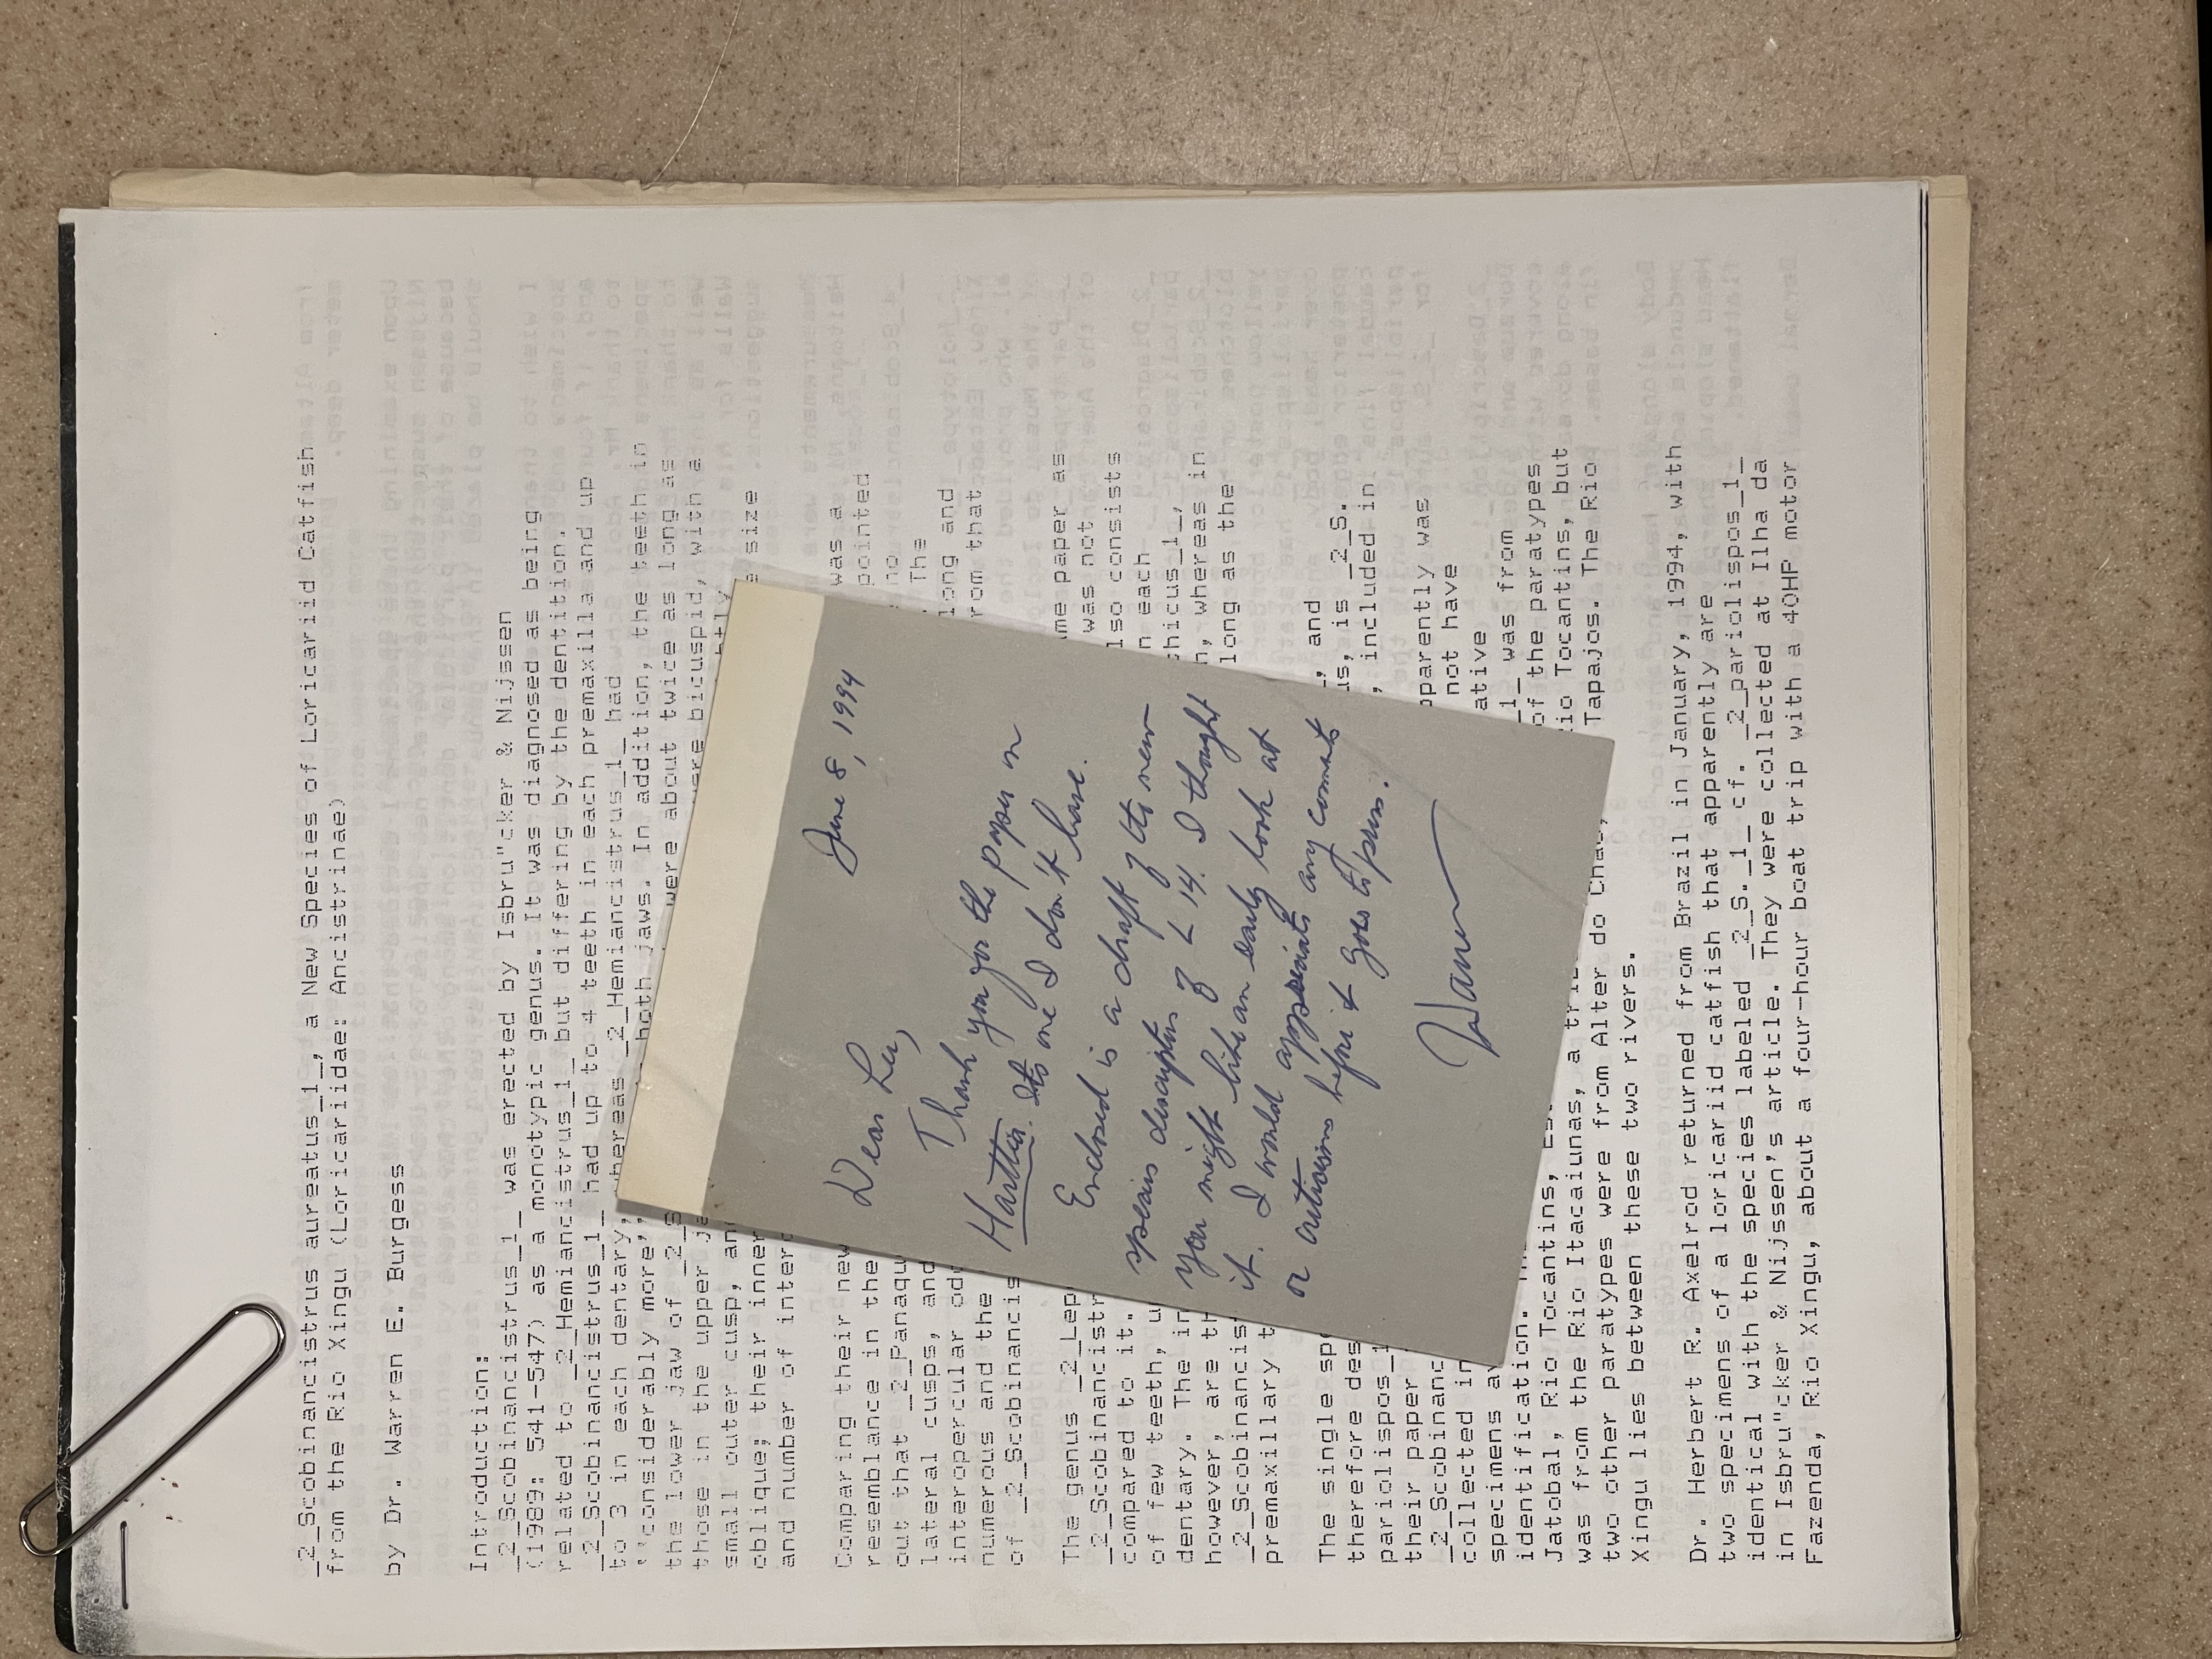 _2_Scobinancistrus aureatus_1_, a New Species of Loricariid Catfish
from the Rio Xingu (Loricariidae: Ancistrinae)
by Dr. Warren E. Burgess
Introduction:
_2_Scobinancistrus_1_ was erected by Isbru"cker & Nijssen
(1989: 541-547) as a monotypic genus. It was diagnosed as being
related to _2_Hemiancistrus_1_ but differing by the dentition.
_2_Scobinancistrus_1_ had up to 4 teeth in each premaxilla and up
to 3 in each dentary, whereas _2_Hemiancistrus_1_ had
``considerably more,'' both jaws. In addition, the teeth in
the lower jaw of _2_S were about twice as long as
those in the upper ja were bicuspid, with a
small outer cusp, and tly
obliquе; their inner e size
and number of interc
Comparing their new was a
resemblance in the pointed
out that _2_Panaqu no
lateral cusps, and The
interopercular odo long and
numerous and the rom that
of _2_Scobinancis
The genus _2_Lep ame paper as
_2_Scobinancistr was not
compared to it. lso consists
of few teeth, u n each
dentary. The in chicus_1_,
however, are th n, whereas in
_2_Scobinancis long as the
premaxillary t
The single spe , and
therefore des us, is _2_S.
pariolispos_1 , included in
their paper
_2_Scobinanc pparently was
collected in not have
specimens av ative
identification. _1_ was from
Jatobal, Rio Tocantins, Est of the paratypes
was from the Rio Itacaiunas, a tri io Tocantins, but
two other paratypes were from Alter do Chao, Tapajos. The Rio
Xingu lies between these two rivers.
Dr. Herbert R. Axelrod returned from Brazil in January, 1994, with
two specimens of a loricariid catfish that apparently are
identical with the species labeled _2_S._1_ cf. _2_pariolispos_1_
in Isbru"cker & Nijssen's article. They were collected at Ilha da
Fazenda, Rio Xingu, about a four-hour boat trip with a 40HP motor
June 8, 1994
Dear Lee,
Thank you for the paper on
Harttia. Its one I don't have.
Enclosed is a draft of the new
species description of L 14. I thought
you might like an early look at
it. I would appreciate any comments
or criticisms before it goes to press.
Warren